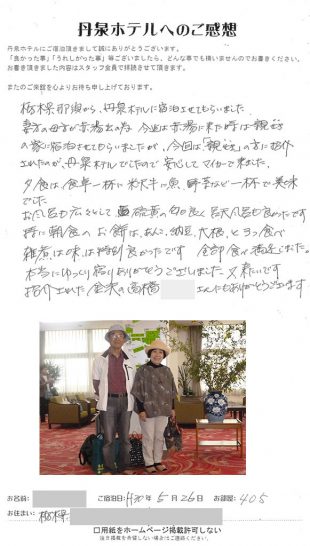 丹泉ホテルへのご感想
丹泉ホテルにご宿泊頂きまして誠にありがとうございます。
「良かった事」「うれしかった事」等ございましたら、どんな事でも構いませんのでお書きください。
お書き頂きました内容はスタッフ全員で拝読させて頂きます。
またのご来館を心よりお待ち申し上げております。
栃木県那須から、丹泉ホテルに宿泊させてもらいました。
妻方の母方が赤湯出の為 今迄は赤湯に来た時は「親せき」
の家に宿泊させてもらいましたが、今回は「親せき」の方に紹介
されたのが、丹泉ホテルでしたので安心してマイカーで来ました。
夕食は食卓一杯に米沢牛、魚、野菜など一杯で美味
でした
お風呂も広々として 硫黄の匂も良く 露天風呂も良かったです
特に朝食の お餅は、あんこ、納豆、大根、と3つ食べ
雑煮は味は特別良かったです 全部食べ満足しました。
本当にゆっくり宿りありがとうございました 又来たいです
紹介された 金沢の高橋 さんにもありがとうございます
お名前: ご宿泊日: H30年5月26日 お部屋: 405
お住まい: 栃木県
□用紙をホームページ掲載許可しない
※自身掲載を希望しない場合はご連絡ください。